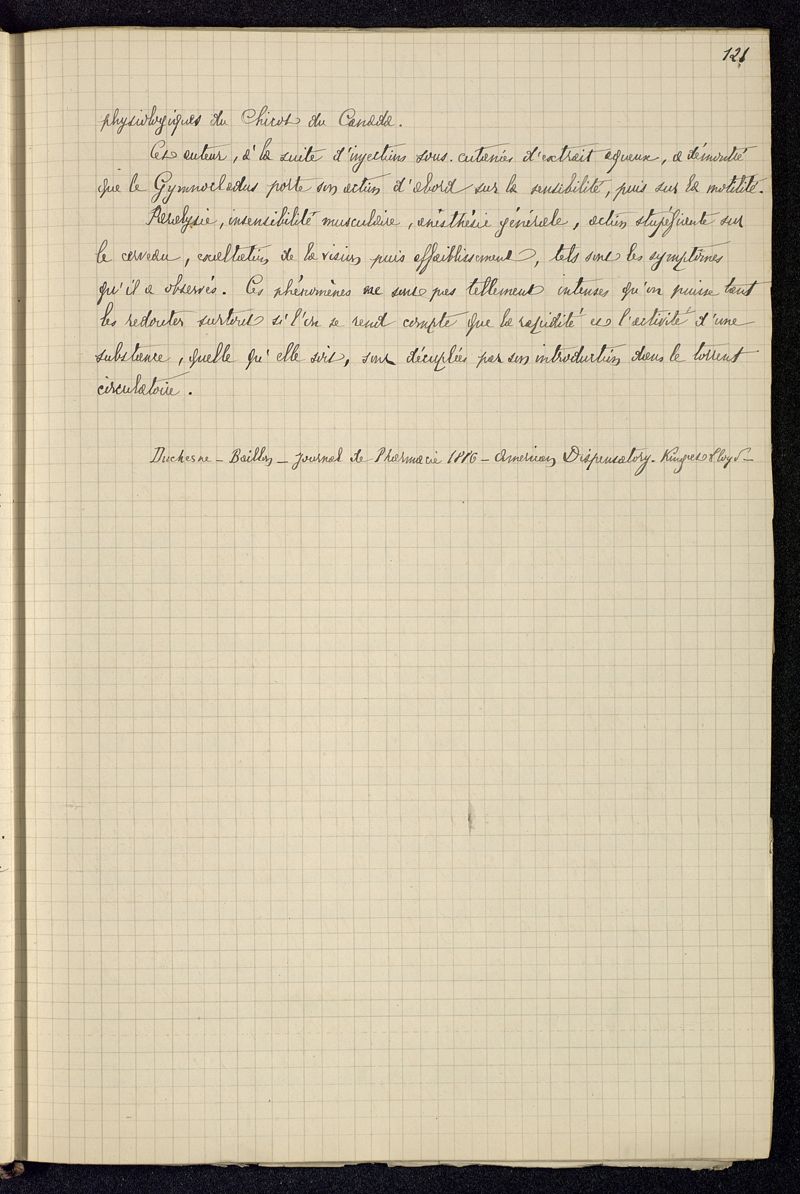 121
physiologiques du Chicot du Canada.
Cet auteur, à la suite d'injections sous-cutanées d'extrait aqueux, a démontré
que le Gymnocladus porte son action d'abord sur la sensibilité, puis sur la motilité.
Paralysie, insensibilité musculaire, anésthésie générale, action stupéfiante sur
le cerveau, exaltation de la vision puis affaiblissement, tels sont les symptômes
qu'il a observés. Ces phénomènes ne sont pas tellement intenses qu'on puisse tant
les redouter surtout si l'on se rend compte que la rapidité et l'activité d'une
substance, quelle qu'elle soit, sont décuplées par son introduction dans le torrent
circulatoire.
Duchesne - Baillon - Journal de Pharmacie 1886 - American Dispensatory.